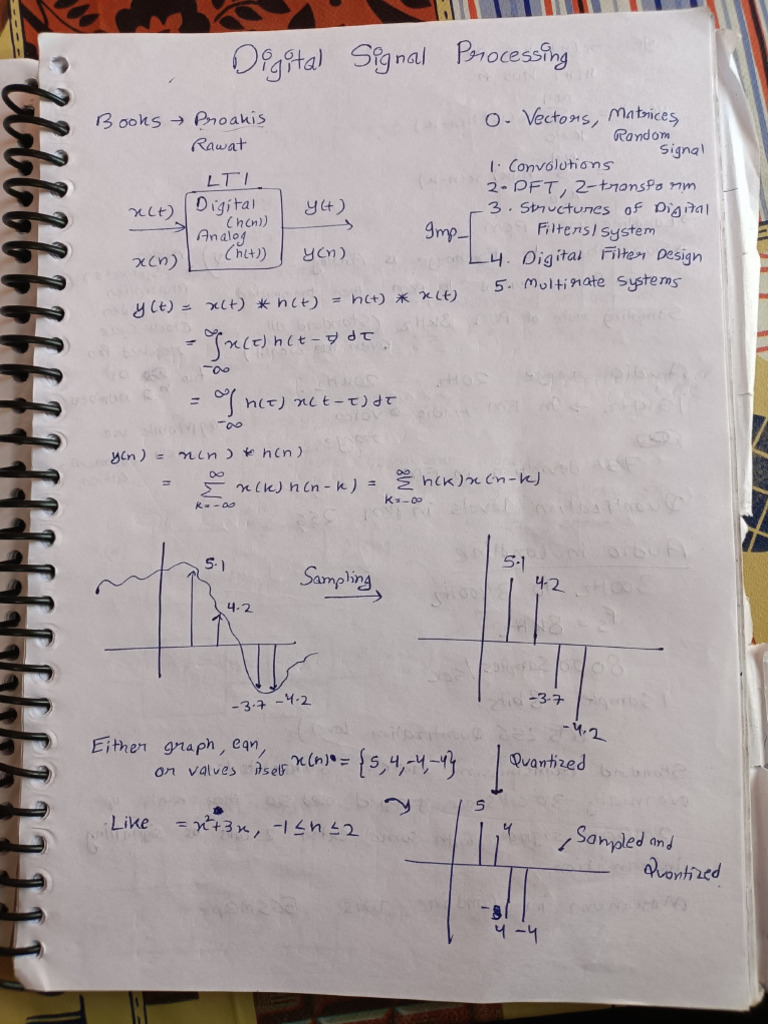 Digital Signal Processing
Books → Proakis
Rawat
0. Vectors, Matrices,
Random
Signal
1. Convolutions
2. DFT, Z-transform
3. Structures of Digital
Filters/system
Imp
4. Digital Filter Design
5. Multirate Systems
LTI
x(t)
Digital
(h(n))
Analog
(h(t))
y(t)
x(n)
y(n)
y(t) = x(t) * h(t) = h(t) * x(t)
= ∫_{-∞}^{∞} x(τ) h(t-τ) dτ.
= ∫_{-∞}^{∞} h(τ) x(t-τ) dτ
y(n) = x(n) * h(n)
= ∑_{k=-∞}^{∞} x(k) h(n-k) = ∑_{k=-∞}^{∞} h(k) x(n-k)
5.1
4.2
-3.7 -4.2
Sampling
5.1
4.2
-3.7
-4.2
Either graph, eqn,
or values itself x(n) = {5, 4, -4, -4}
Quantized
Like = x²+3x, -1 ≤ n ≤ 2
5
4
Sampled and
Quantized
-4 -4